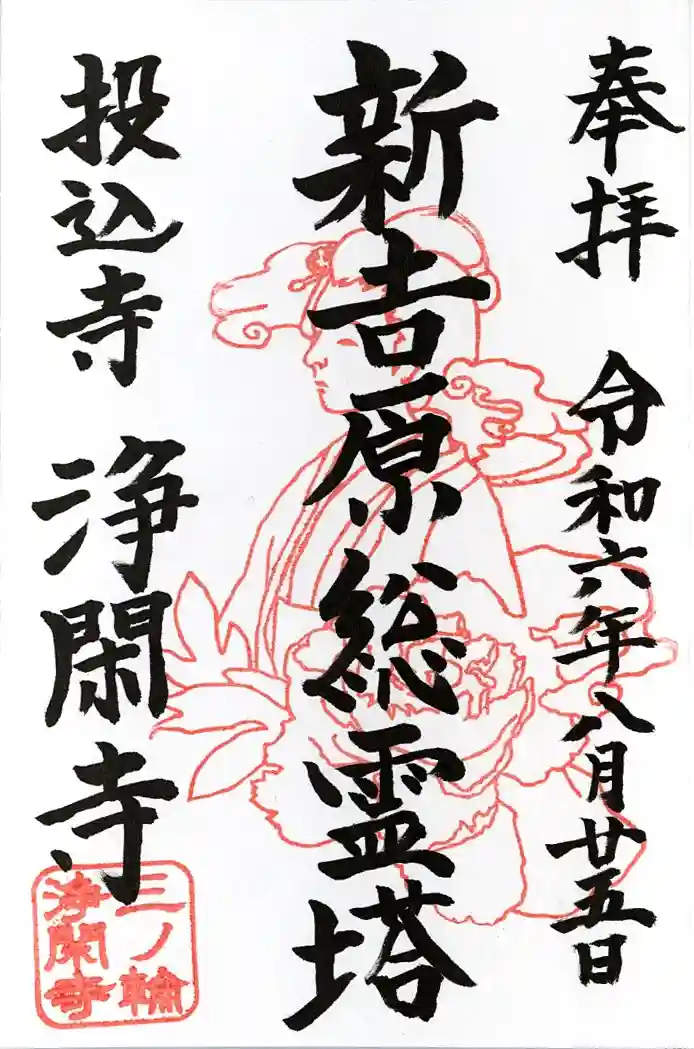 奉拝 令和六年八月廿五日
新吉原総霊塔
投込寺 浄閑寺
三ノ輪
浄閑寺